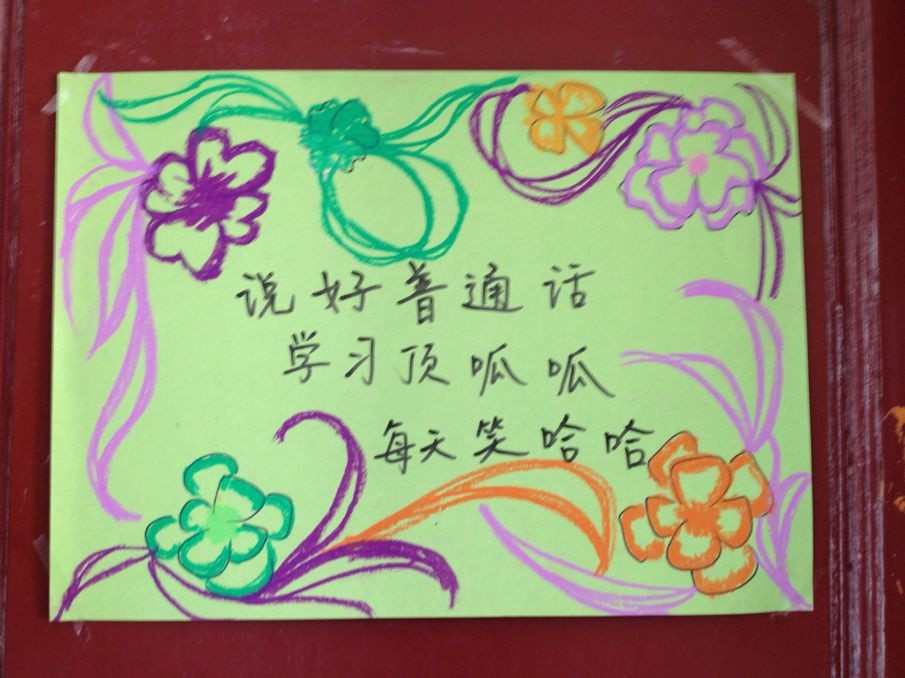 说好普通话
学习顶呱呱
每天笑哈哈